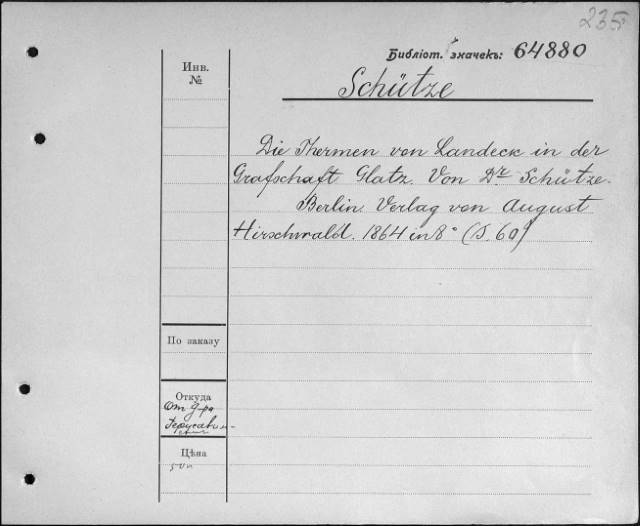 235
Библіот. значекъ: 64880
Инв.
№
Schütze
Die Thermen von Landeck in der
Grafschaft Glatz. Von Dr Schütze.
Berlin. Verlag von August
Hirschwald. 1864 in 8° (S. 60)
По заказу
Откуда
От Д-ра
Цѣна
50 к